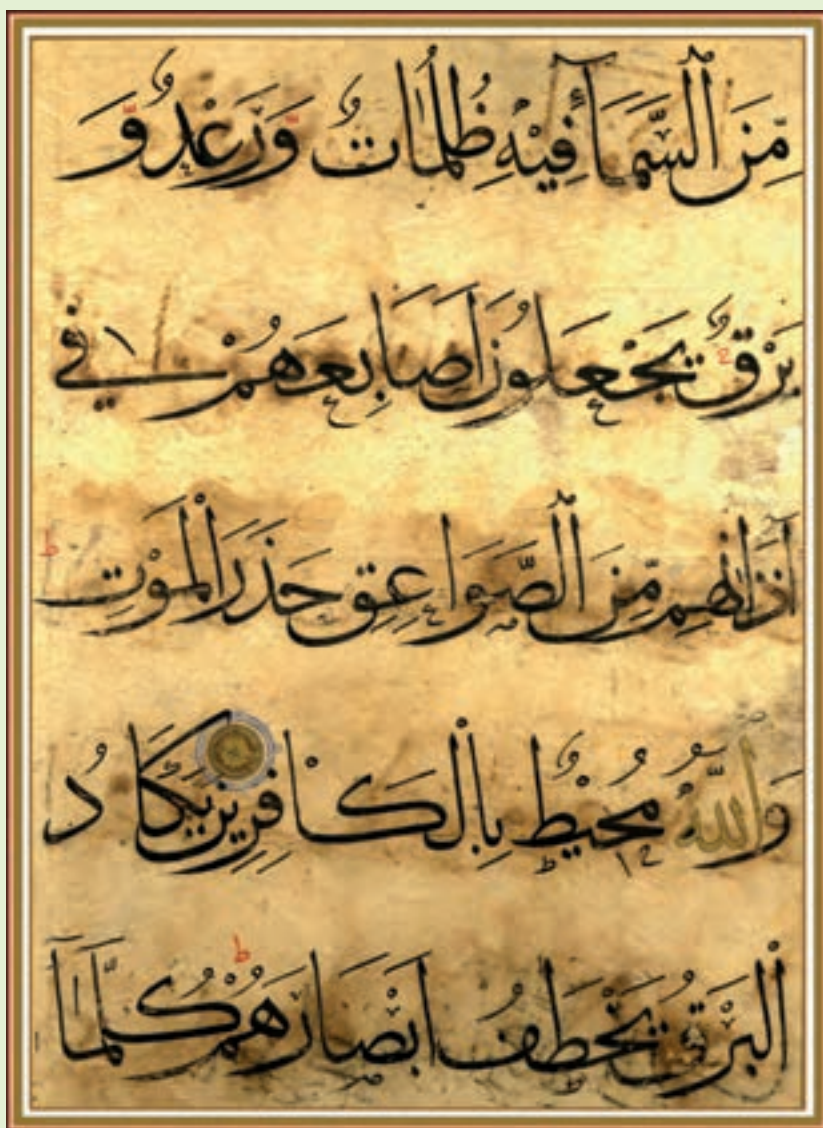 مِّنَ ٱلسَّمَآءِ فِيْهِ ظُلُمَاتٌ وَّرَعْدٌ وَّ
بَرْقٌ يَجْعَلُونَ اَصَابِعَهُمْ فِي
آذَانِهِم مِّنَ ٱلصَّوَاعِقِ حَذَرَ الْمَوْتِ
وَٱللَّهُ مُحِيْطٌ بِالْكَافِرِينَ يَكَادُ
ٱلْبَرْقُ يَخْطَفُ اَبْصَارَهُمْ كُلَّمَآ